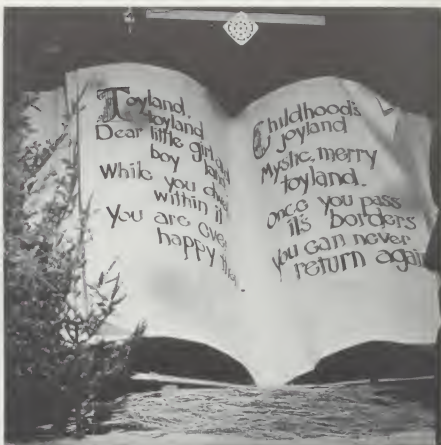 Toyland,
toyland
Dear little girl and
boy land
While you dwell
within it
You are ever
happy then.
Childhood's
joyland
Mystic, merry
toyland.
once you pass
it's borders
you can never
return again